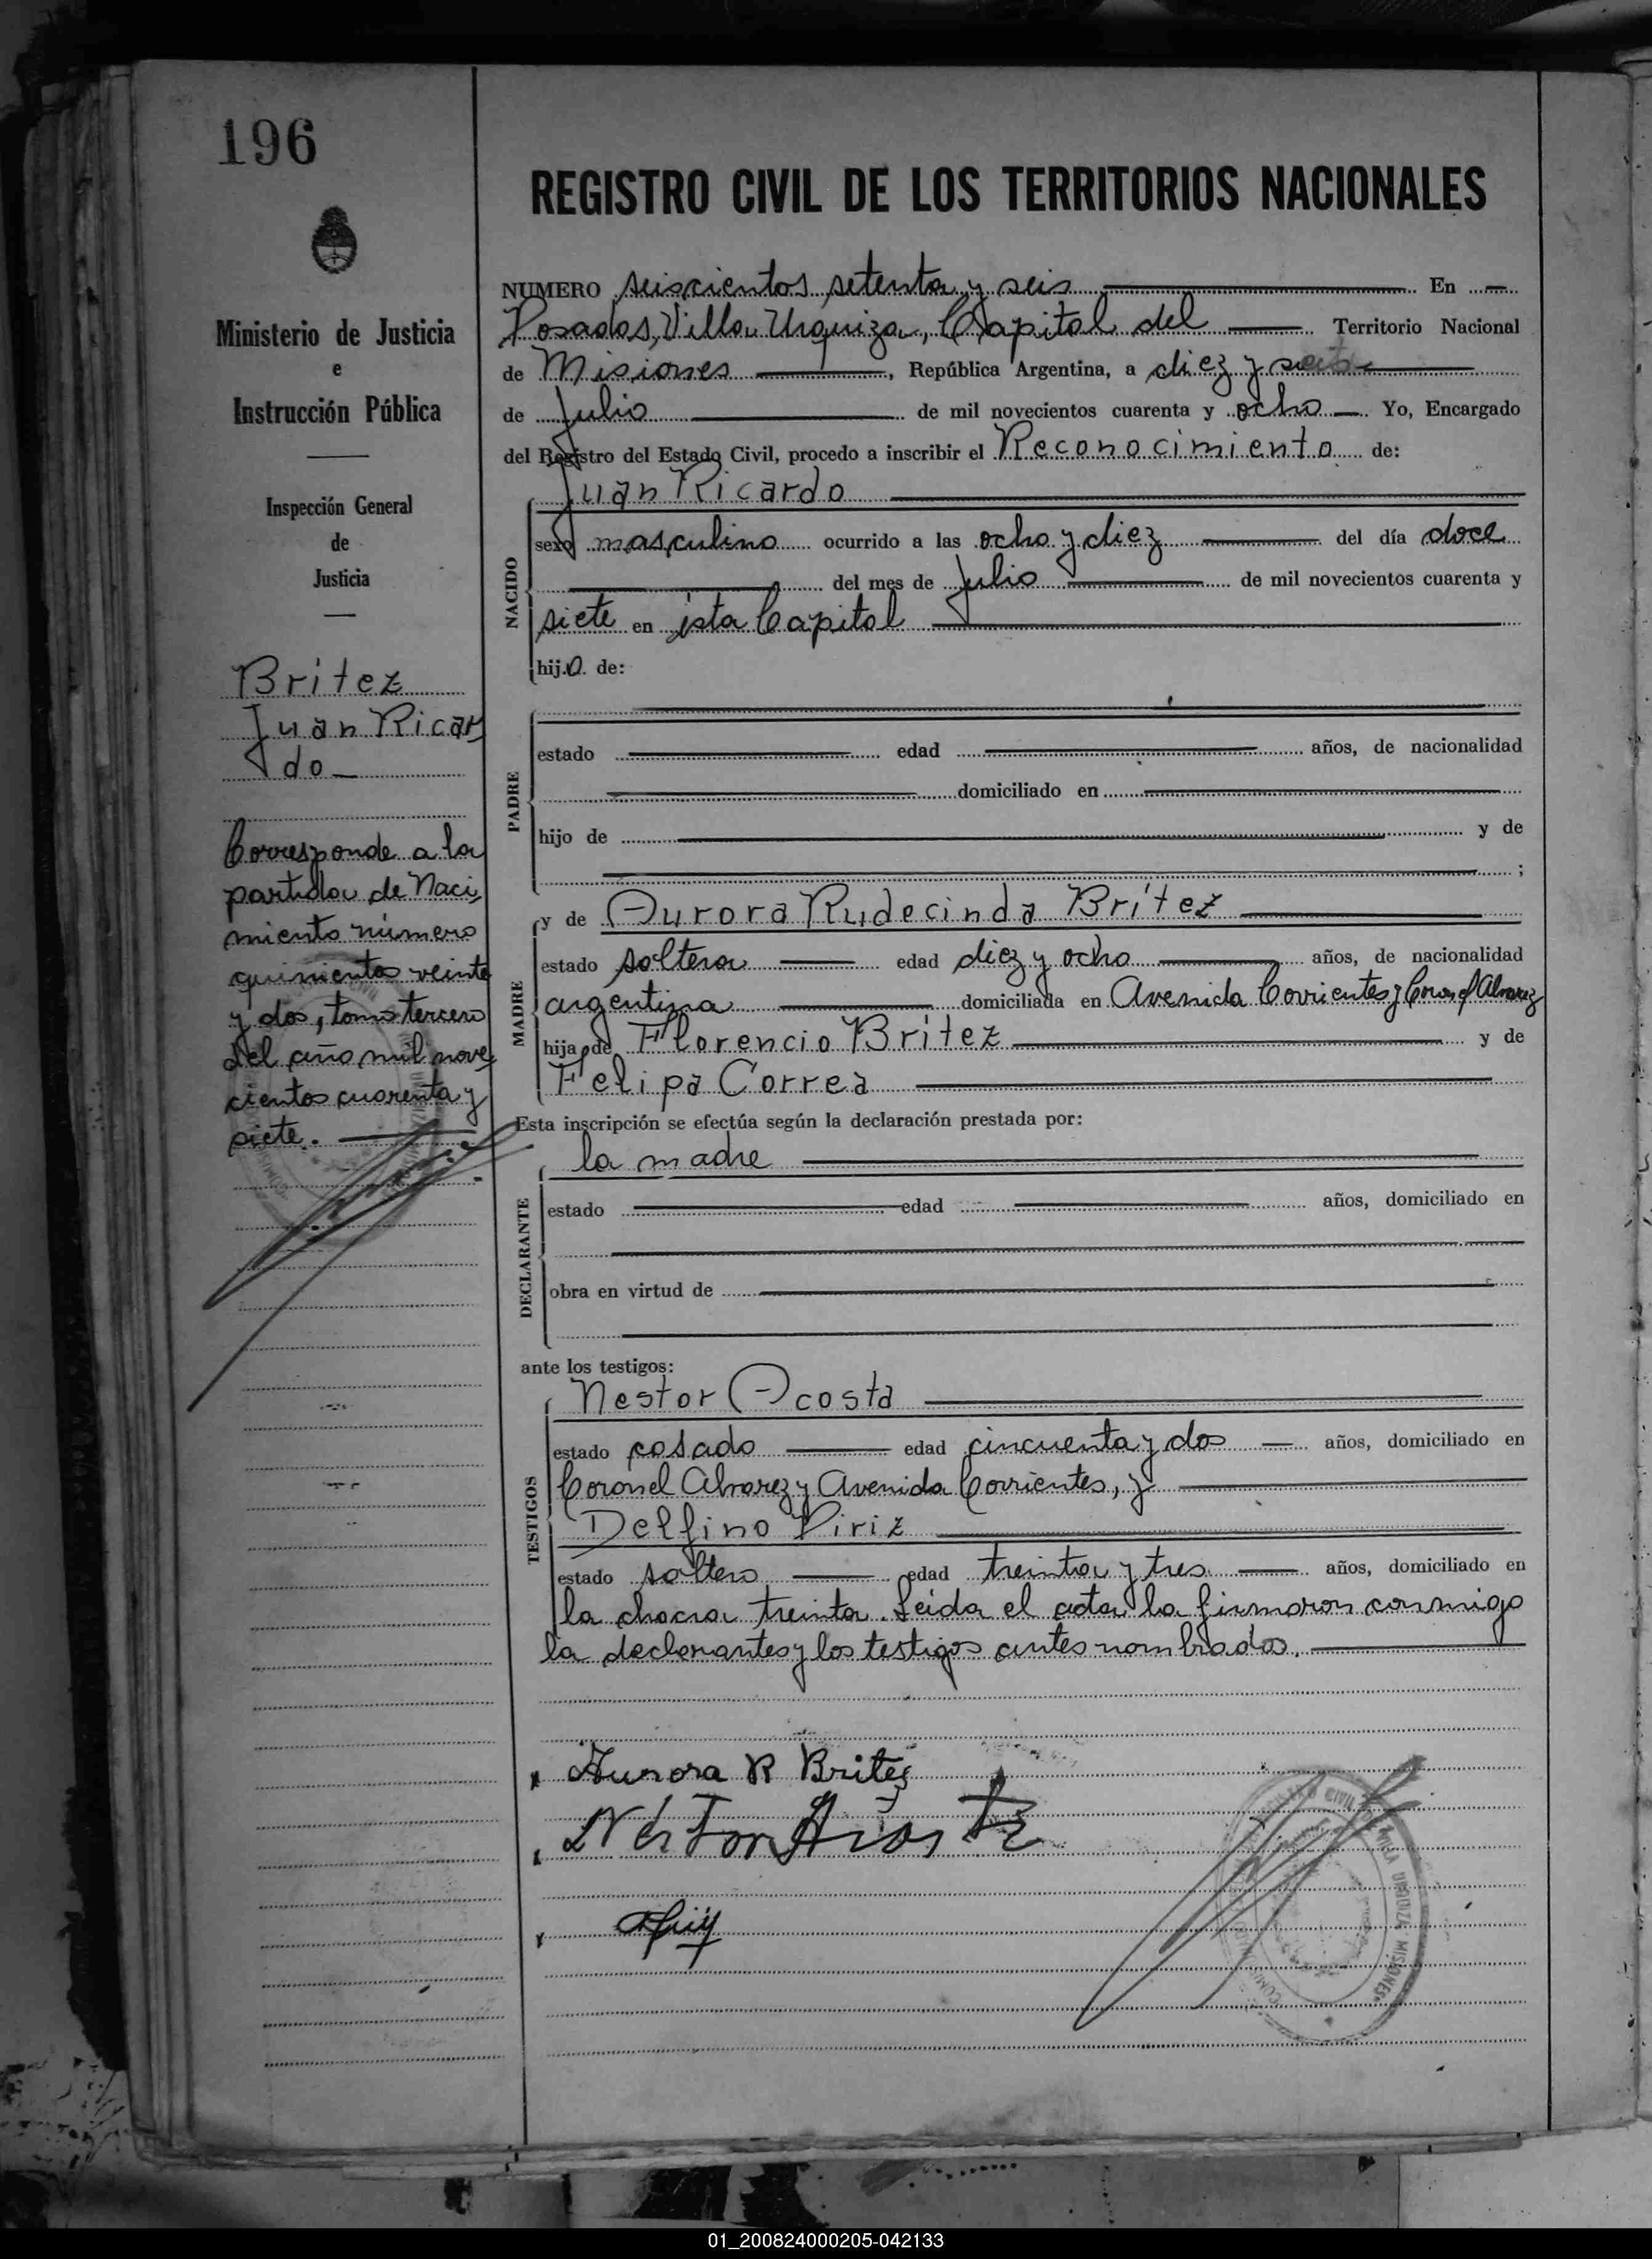 196
REGISTRO CIVIL DE LOS TERRITORIOS NACIONALES
Ministerio de Justicia
e
Instrucción Pública
Inspección General
de
Justicia
Britez
Juan Ricar
do
Corresponde a la
partida de Naci
miento número
quinientos veinte
y dos, tomo tercero
del año mil nove
cientos cuarenta y
siete.
NUMERO seiscientos setenta y seis En
Posadas, Villa Urquiza, Capital del Territorio Nacional
de Misiones, República Argentina, a diez y
de Julio de mil novecientos cuarenta y ocho Yo, Encargado
del Registro del Estado Civil, procedo a inscribir el Reconocimiento de:
Juan Ricardo
NACIDO
sexo masculino ocurrido a las ocho y diez del día doce
del mes de Julio de mil novecientos cuarenta y
siete en ésta Capital
hijo de:
PADRE
estado edad años, de nacionalidad
domiciliado en
hijo de y de
;
MADRE
y de Aurora Rudecinda Britez
estado soltera edad diez y ocho años, de nacionalidad
argentina domiciliada en Avenida Corrientes y Coronel Alvarez
hija de Florencio Britez y de
Felipa Correa
Esta inscripción se efectúa según la declaración prestada por:
DECLARANTE
la madre
estado edad años, domiciliado en
obra en virtud de
ante los testigos:
TESTIGOS
Nestor Acosta
estado casado edad cincuenta y dos años, domiciliado en
Coronel Alvarez y Avenida Corrientes, y
Delfino Piriz
estado soltero edad treinta y tres años, domiciliado en
la chacra treinta. Leida el acta la firmaron conmigo
la declarantes y los testigos antes nombrados.
Aurora R Britez
Néstor Acosta
REGISTRO CIVIL DE VILLA URQUIZA MISIONES
01_200824000205-042133